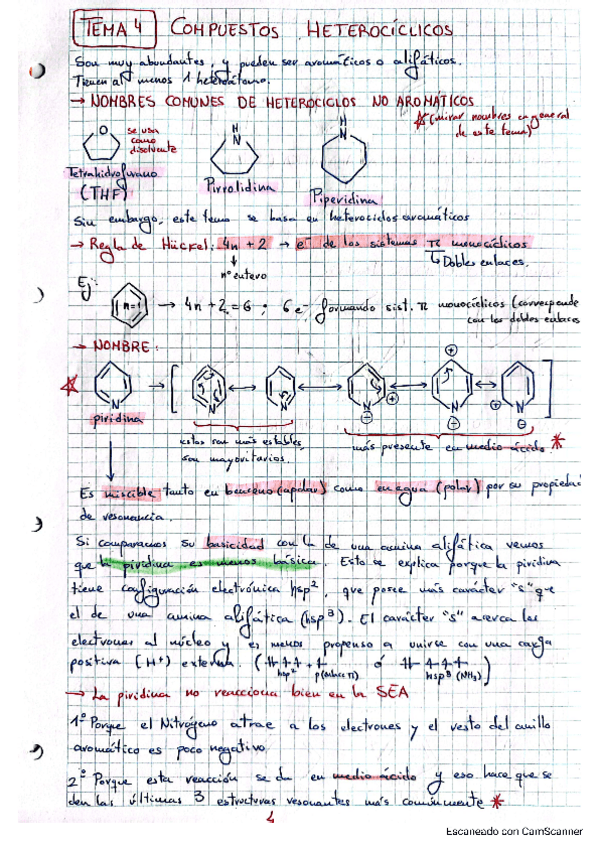 TEMA 4 COMPUESTOS HETEROCÍCLICOS
Son muy abundantes, y pueden ser aromáticos o alifáticos.
Tienen al menos 1 heteroátomo.
→ NOMBRES COMUNES DE HETEROCICLOS NO AROMÁTICOS
* (mirar nombres en general
de este tema)
O
se usa
como
disolvente
H
N
H
N
Tetrahidrofurano
(THF)
Pirrolidina
Piperidina
Sin embargo, este tema se basa en heterociclos aromáticos
→ Regla de Hückel: 4n + 2 → e⁻ de los sistemas π monocíclicos
↓
nº entero
↳ Dobles enlaces.
Ej:
n=1 → 4n + 2 = 6 ; 6 e⁻ formando sist. π monocíclicos (corresponde
con los dobles enlaces
→ NOMBRE:
N
N
N
N
N
N
piridina
estas son más estables,
son mayoritarios.
más presente en medio ácido *
Es miscible tanto en benceno (apolar) como en agua (polar) por su propiedad
de resonancia.
Si comparamos su basicidad con la de una amina alifática vemos
que la piridina es menos básica. Esto se explica porque la piridina
tiene configuración electrónica hsp², que posee más carácter "s" que
el de una amina alifática (hsp³). El carácter "s" acerca los
electrones al núcleo y es menos propenso a unirse con una carga
positiva (H⁺) externa.
hsp²
ó
hsp³ (NH₃)
→ La piridina no reacciona bien en la SEA
1º Porque el Nitrógeno atrae a los electrones y el resto del anillo
aromático es poco negativo
2º Porque esta reacción se da en medio ácido y eso hace que se
den las últimas 3 estructuras resonantes más comúnmente *
Escaneado con CamScanner